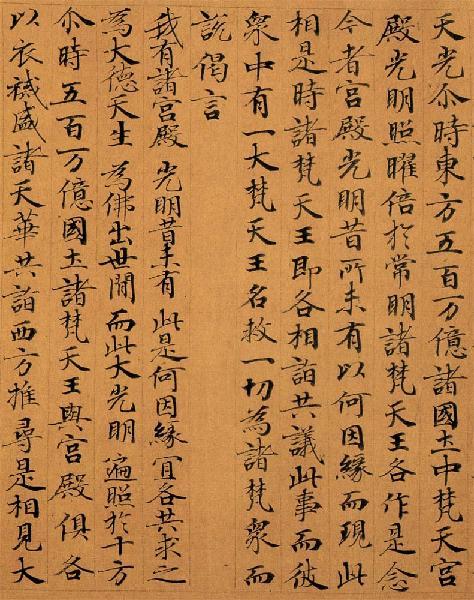 天光尒時東方五百万億諸國土中梵天宮
殿光明照曜倍於常明諸梵天王各作是念
今者宮殿光明昔所未有以何因緣而現此
相是時諸梵天王即各相詣共議此事而彼
衆中有一大梵天王名救一切為諸梵衆而
說偈言
我有諸宮殿 光明昔未有 此是何因緣 宜各共求之
為大德天生 為佛出世間 而此大光明 遍照於十方
尒時五百万億國土諸梵天王與宮殿俱各
以衣祴盛諸天華共詣西方推尋是相見大